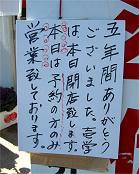 五年間ありがとう
ございました。壱学
は本日閉店致します。
本日は予約の方のみ
営業致しております。